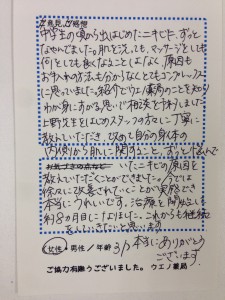 ご意見・ご感想
中学生の頃から出はじめたニキビ、ずっと
なやんでました。肌を洗っても、マッサージをしても
何をしても良くなることはなく、原因も
お手入れの方法も分からなくてとてもコンプレックス
に思っていました。紹介でウエノ薬局のことを知り
わが身にすがる思いで相談と予約しました。
上野先生をはじめスタッフの方々に丁寧に
教えていただき、改めて自分の身体の
内側から肌に関すること、ずっとなやんで
いたニキビの原因を
教えていただくことができました。今では
徐々に改善されていくことが実感でき
本当にうれしいです。治療を開始して
約8ヵ月目になりました。これからも継続
をしていきたいと思います。
本当にありがとう
ございます。
女性・男性／年齢 31
ご協力有難うございました。ウエノ薬局